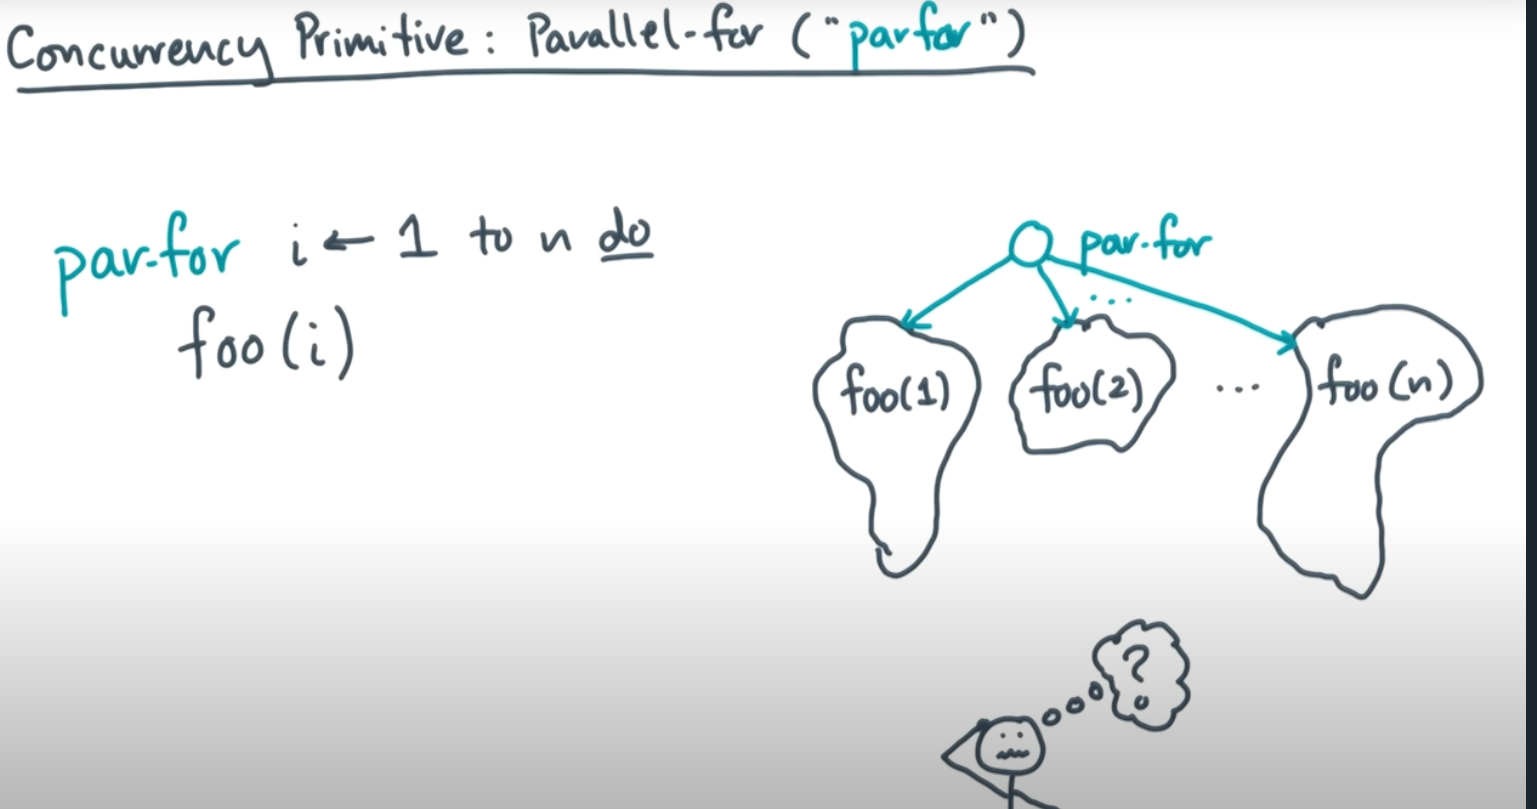 Concurrency Primitive: Parallel-for ("par for")
par-for i ← 1 to n do
foo(i)
par-for
...
foo(1) foo(2) ... foo(n)
?